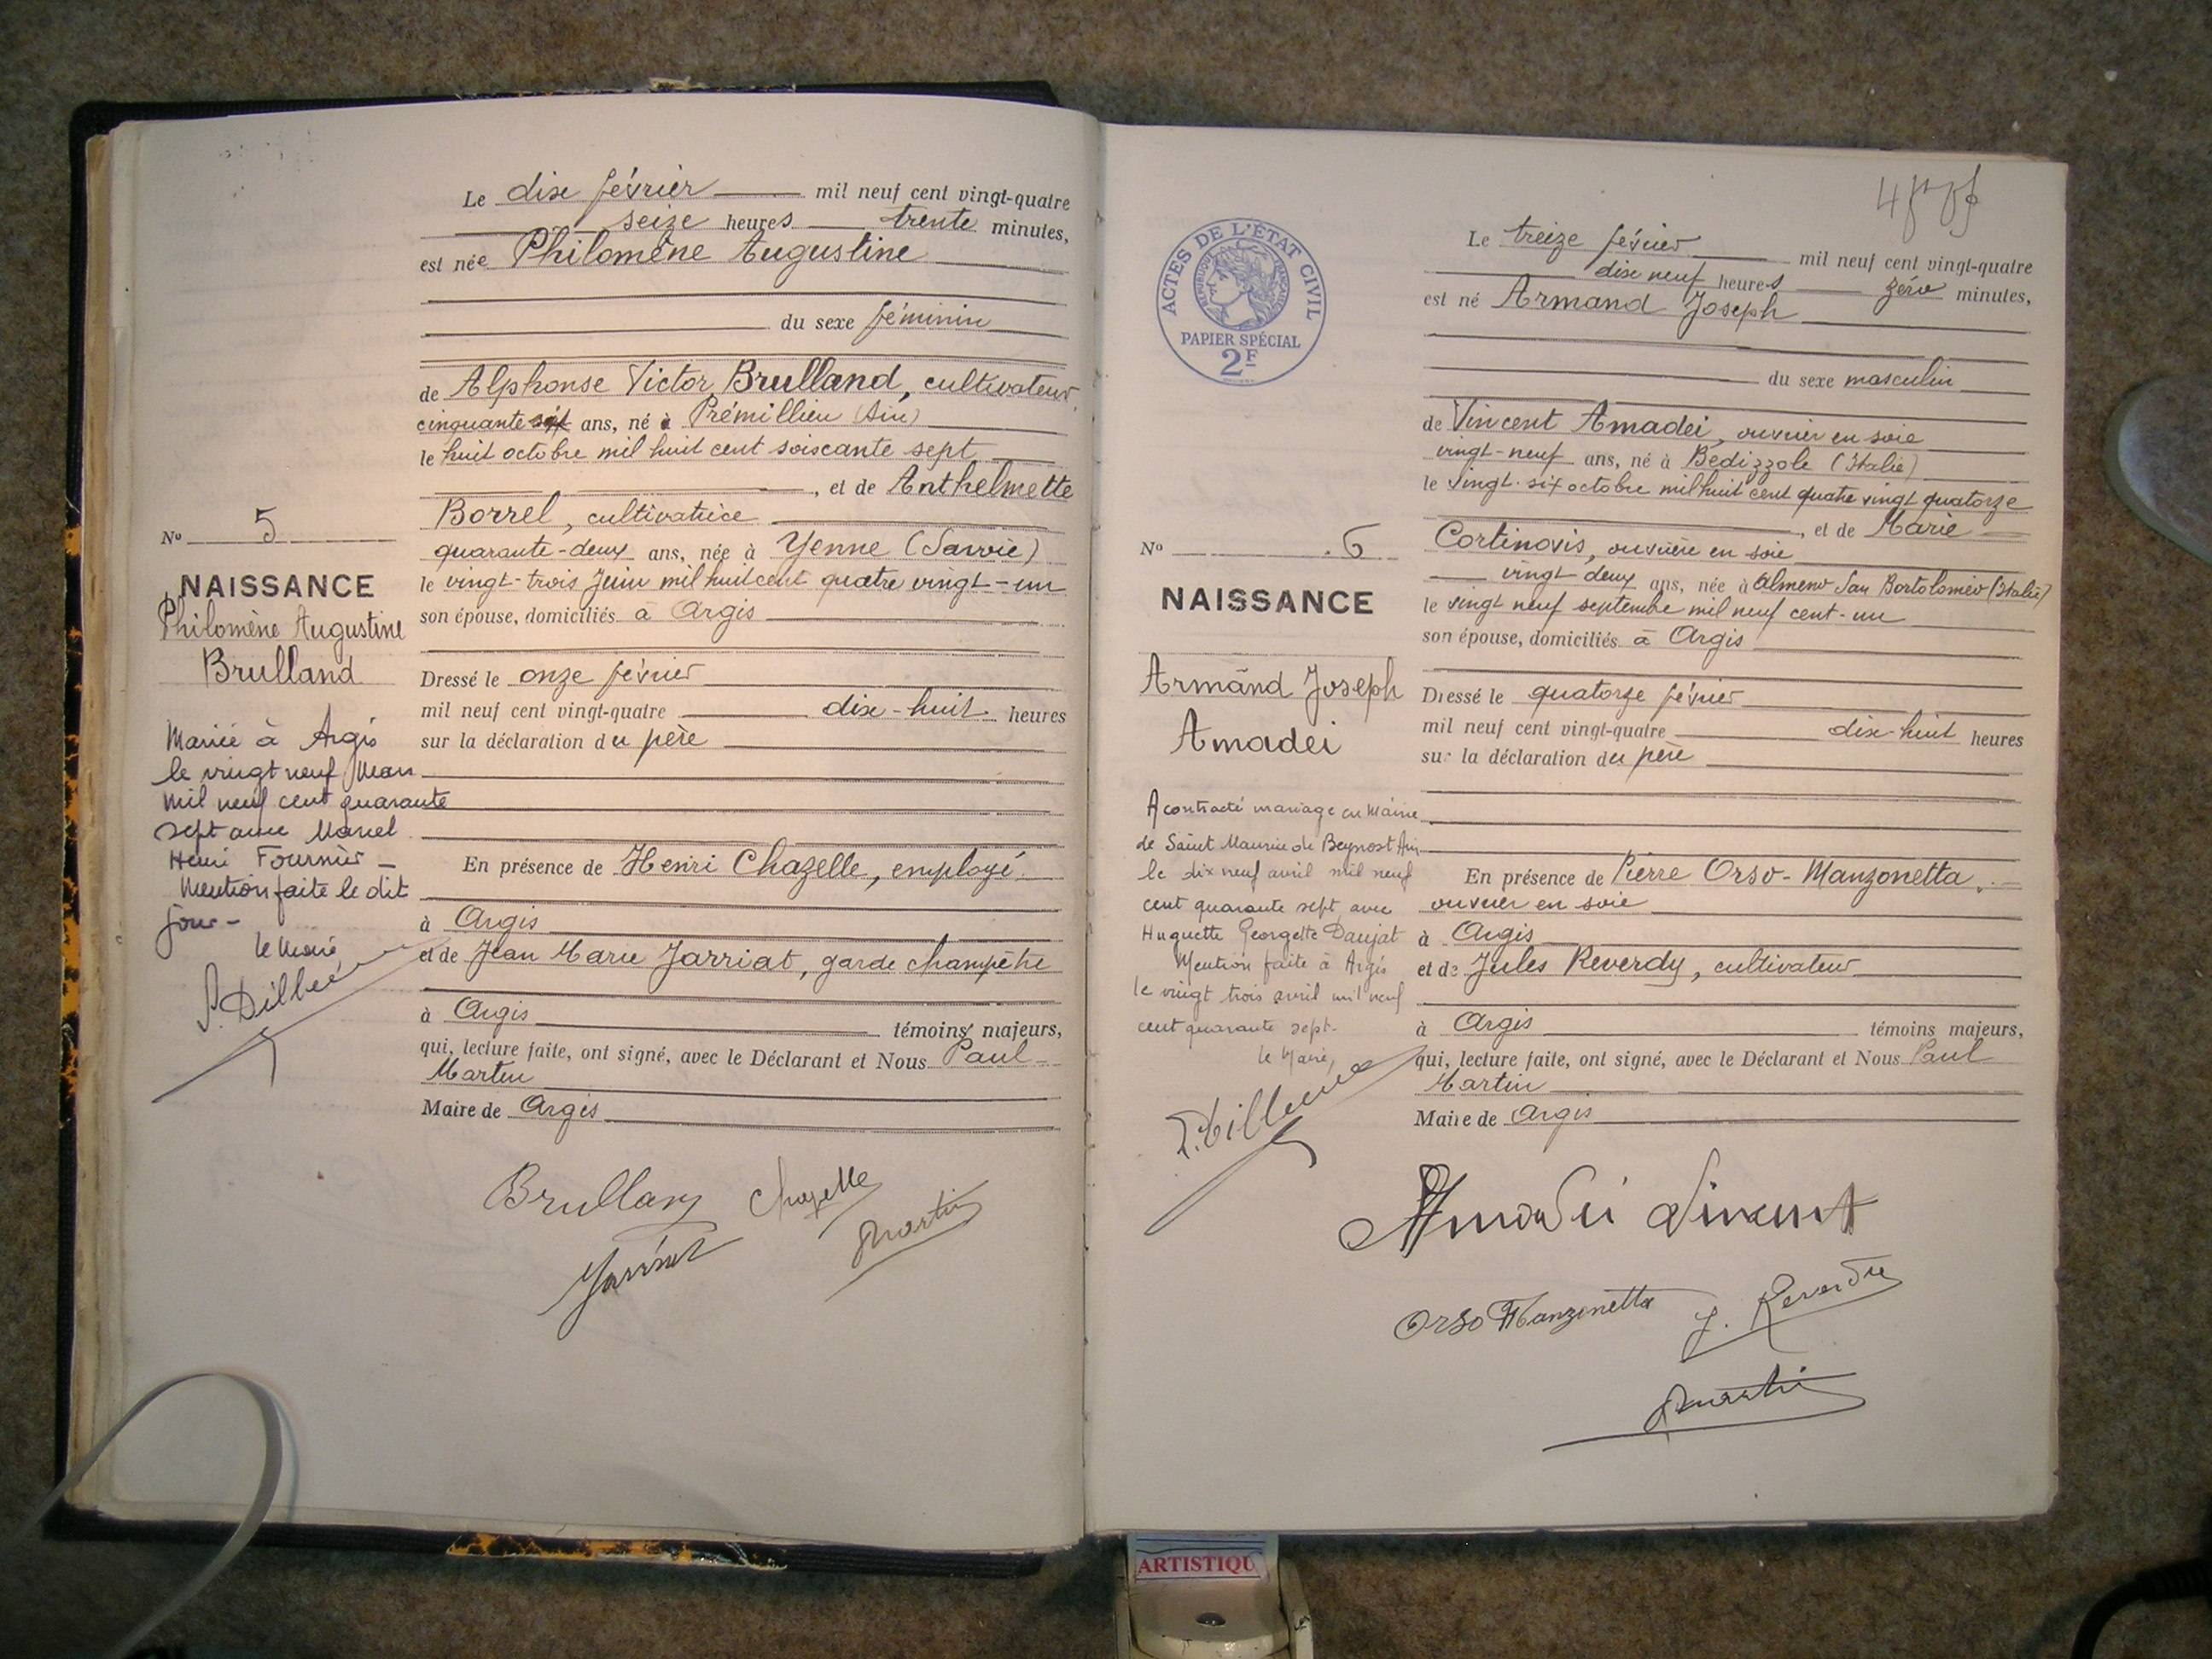 Le dix février mil neuf cent vingt-quatre
seize heures trente minutes,
est née Philomène Augustine
du sexe féminin
de Alphonse Victor Brulland, cultivateur,
cinquante ans, né à Prémillieu (Ain)
le huit octobre mil huit cent soixante sept
, et de Anthelmette
Borrel, cultivatrice
quarante-deux ans, née à Yenne (Savoie)
le vingt-trois Juin mil huit cent quatre vingt-un
son épouse, domiciliés à Argis
Dressé le onze février
mil neuf cent vingt-quatre dix-huit heures
sur la déclaration du père
En présence de Henri Chazelle, employé
à Argis
et de Jean Marie Jarriat, garde champêtre
à Argis témoins majeurs,
qui, lecture faite, ont signé, avec le Déclarant et Nous Paul
Martin
Maire de Argis
No 5
NAISSANCE
Philomène Augustine
Brulland
Mariée à Argis
le vingt neuf Mars
mil neuf cent quarante
sept avec Marcel
Henri Fournier
Mention faite le dit
jour
le Maire
Brulland Chazelle
Jarriat Martin
4
ACTES DE L'ÉTAT CIVIL
RÉPUBLIQUE FRANÇAISE
PAPIER SPÉCIAL
2F
Le treize février mil neuf cent vingt-quatre
dix neuf heures zéro minutes,
est né Armand Joseph
du sexe masculin
de Vincent Amadei, ouvrier en soie
vingt-neuf ans, né à Bedizzole (Italie)
le vingt-six octobre mil huit cent quatre vingt quatorze
, et de Marie
Cortinovis, ouvrière en soie
vingt deux ans, née à Almeno San Bortolomeo (Italie)
le vingt neuf septembre mil neuf cent-un
son épouse, domiciliés à Argis
Dressé le quatorze février
mil neuf cent vingt-quatre dix-huit heures
sur la déclaration du père
En présence de Pierre Orso-Manzonetta,
ouvrier en soie
à Argis
et de Jules Reverdy, cultivateur
à Argis témoins majeurs,
qui, lecture faite, ont signé, avec le Déclarant et Nous Paul
Martin
Maire de Argis
No 6
NAISSANCE
Armand Joseph
Amadei
A contracté mariage en Mairie
de Saint Maurice de Beynost Ain
le dix neuf avril mil neuf
cent quarante sept avec
Huguette Georgette Daujat
Mention faite à Argis
le vingt trois avril mil neuf
cent quarante sept.
le Maire,
Amadei Vincent
Orso Manzonetta J. Reverdy
Martin
ARTISTIQU